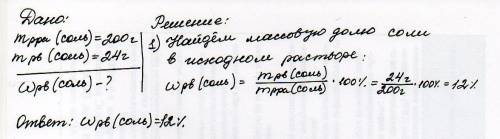 Дано:
mрра (соль) = 200г
mрв (соль) = 24г
ωрв (соль) - ?
Решение:
1) Найдём массовую долю соли
в исходном растворе:
ωрв (соль) = mрв (соль) / mрра (соль) · 100% = 24г / 200г · 100% = 12%
Ответ: ωрв (соль) = 12%.